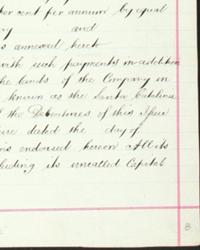 per cent for annum by equal
and
s annexed hereto
with such payments in addition
the lands of the Company in
known as the Santa Catalina
of the Debentures of this Issue
dated the day of
ns endorsed hereon All its
luding its uncalled Capital
8